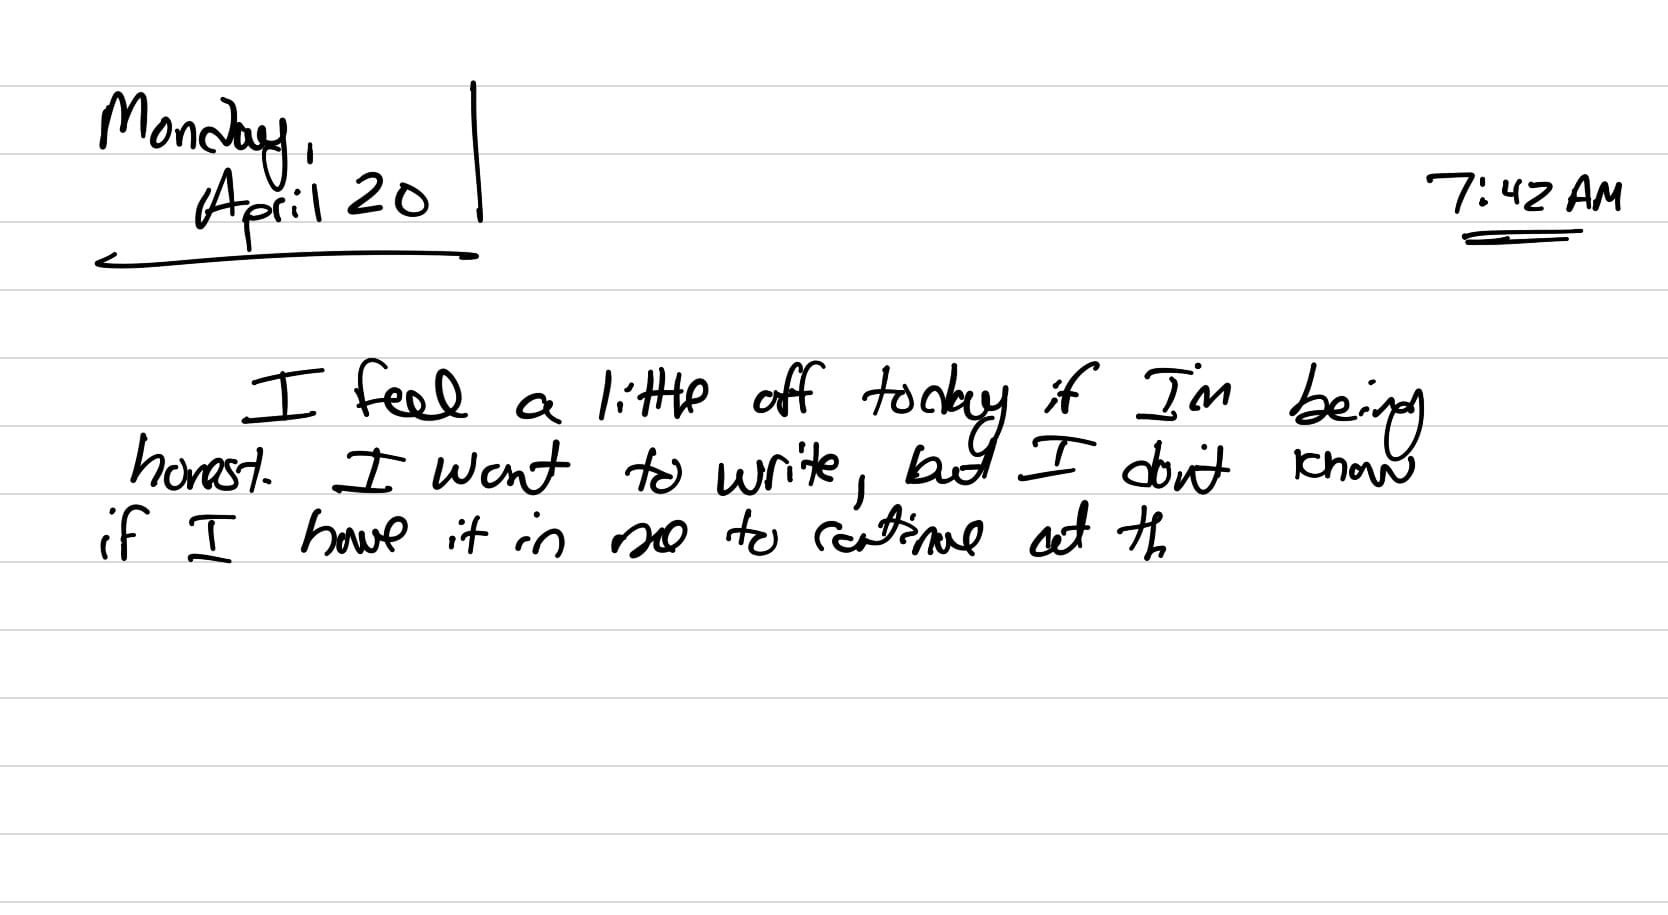 Monday,
April 20
7:42 AM
I feel a little off today if I'm being
honest. I want to write, but I don't know
if I have it in me to continue at th